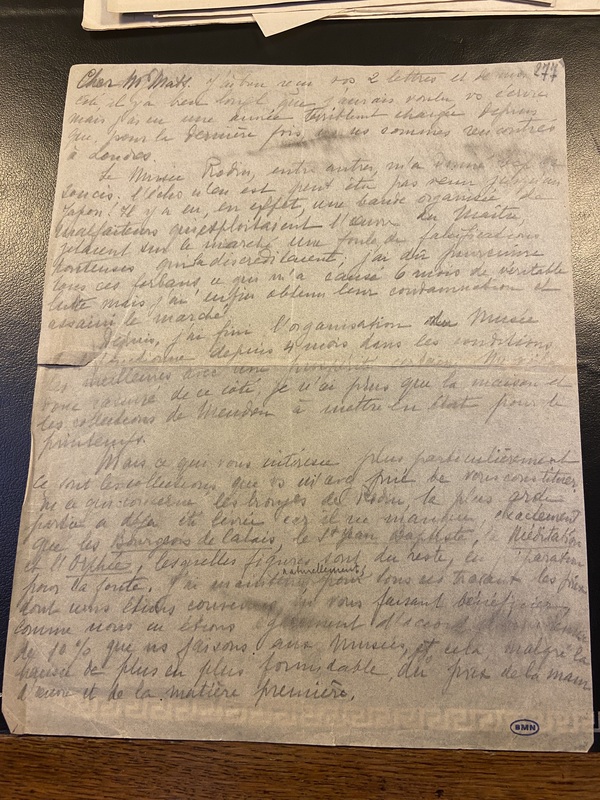 277
Cher Mr Mats. j'ai bien reçu vos 2 lettres et de mon
côté il y a bien longt que j'aurais voulu vs écrire
mais j'ai eu une année terriblemt chargée depuis
que, pour la dernière fois, ns ns sommes rencontrés
à Londres.
Le Musée Rodin, entre autres, m'a donné de
soucis. l'écho n'en est peut être pas venu jusqu'au
Japon! Il y a eu, en effet, une bande organisée de
malfaiteurs qui exploitaient l'œuvre du Maître,
jetaient sur le marché une foule de falsifications
honteuses qui la discréditaient; j'ai dû poursuivre
tous ces forbans ce qui m'a causé 6 mois de véritable
lutte mais j'ai enfin obtenu leur condamnation et
assaini le marché!
Depuis, j'ai fini l'organisation du Musée
depuis 4 mois dans les conditions
les meilleures avec une
donc de ce côté je n'ai plus que la maison et
les collections de Meudon à mettre en état pour le
printemps.
Mais ce qui vous intéresse plus particulièrement
ce sont les collections que vs m'avez prié de vous constituer.
En ce qui concerne les bronzes de Rodin, la plus grde
partie a déjà été livrée car il ne manque exactement
que les Bourgeois de Calais, le St Jean Baptiste, la Méditation
et l'Orphée, lesquelles figures sont du reste, en
pour la fonte. J'ai maintenu, naturellement, pour tous ces travaux les prix
dont nous étions convenus, en vous faisant bénéficier,
comme nous en étions également d'accord,
de 10% que ns faisons aux Musées, et cela malgré la
hausse de plus en plus formidable du prix de la main
d'œuvre et de la matière première.
BMN